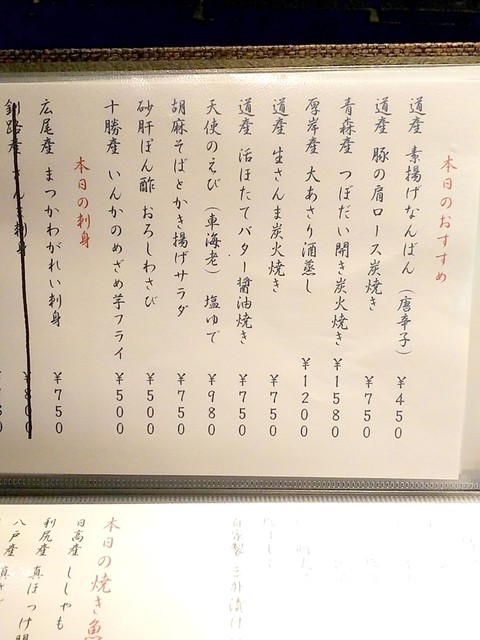 本日のおすすめ
道産 素揚げなんばん（唐辛子） ￥450
道産 豚の肩ロース炭焼き ￥750
青森産 つぼだい開き炭火焼き ￥1580
厚岸産 大あさり酒蒸し ￥1200
道産 生さんま炭火焼き ￥750
道産 活ほたてバター醤油焼き ￥750
天使のえび（車海老）塩ゆで ￥980
胡麻そばとかき揚げサラダ ￥750
砂肝ぽん酢 おろしわさび ￥500
十勝産 いんかのめざめ芋フライ ￥500
本日の刺身
広尾産 まつかわがれい刺身 ￥750
釧路産 さんま刺身 ￥800
本日の焼き魚
日高産 ししゃも
利尻産 真ほっけ開
八戸産 真さ
自家製